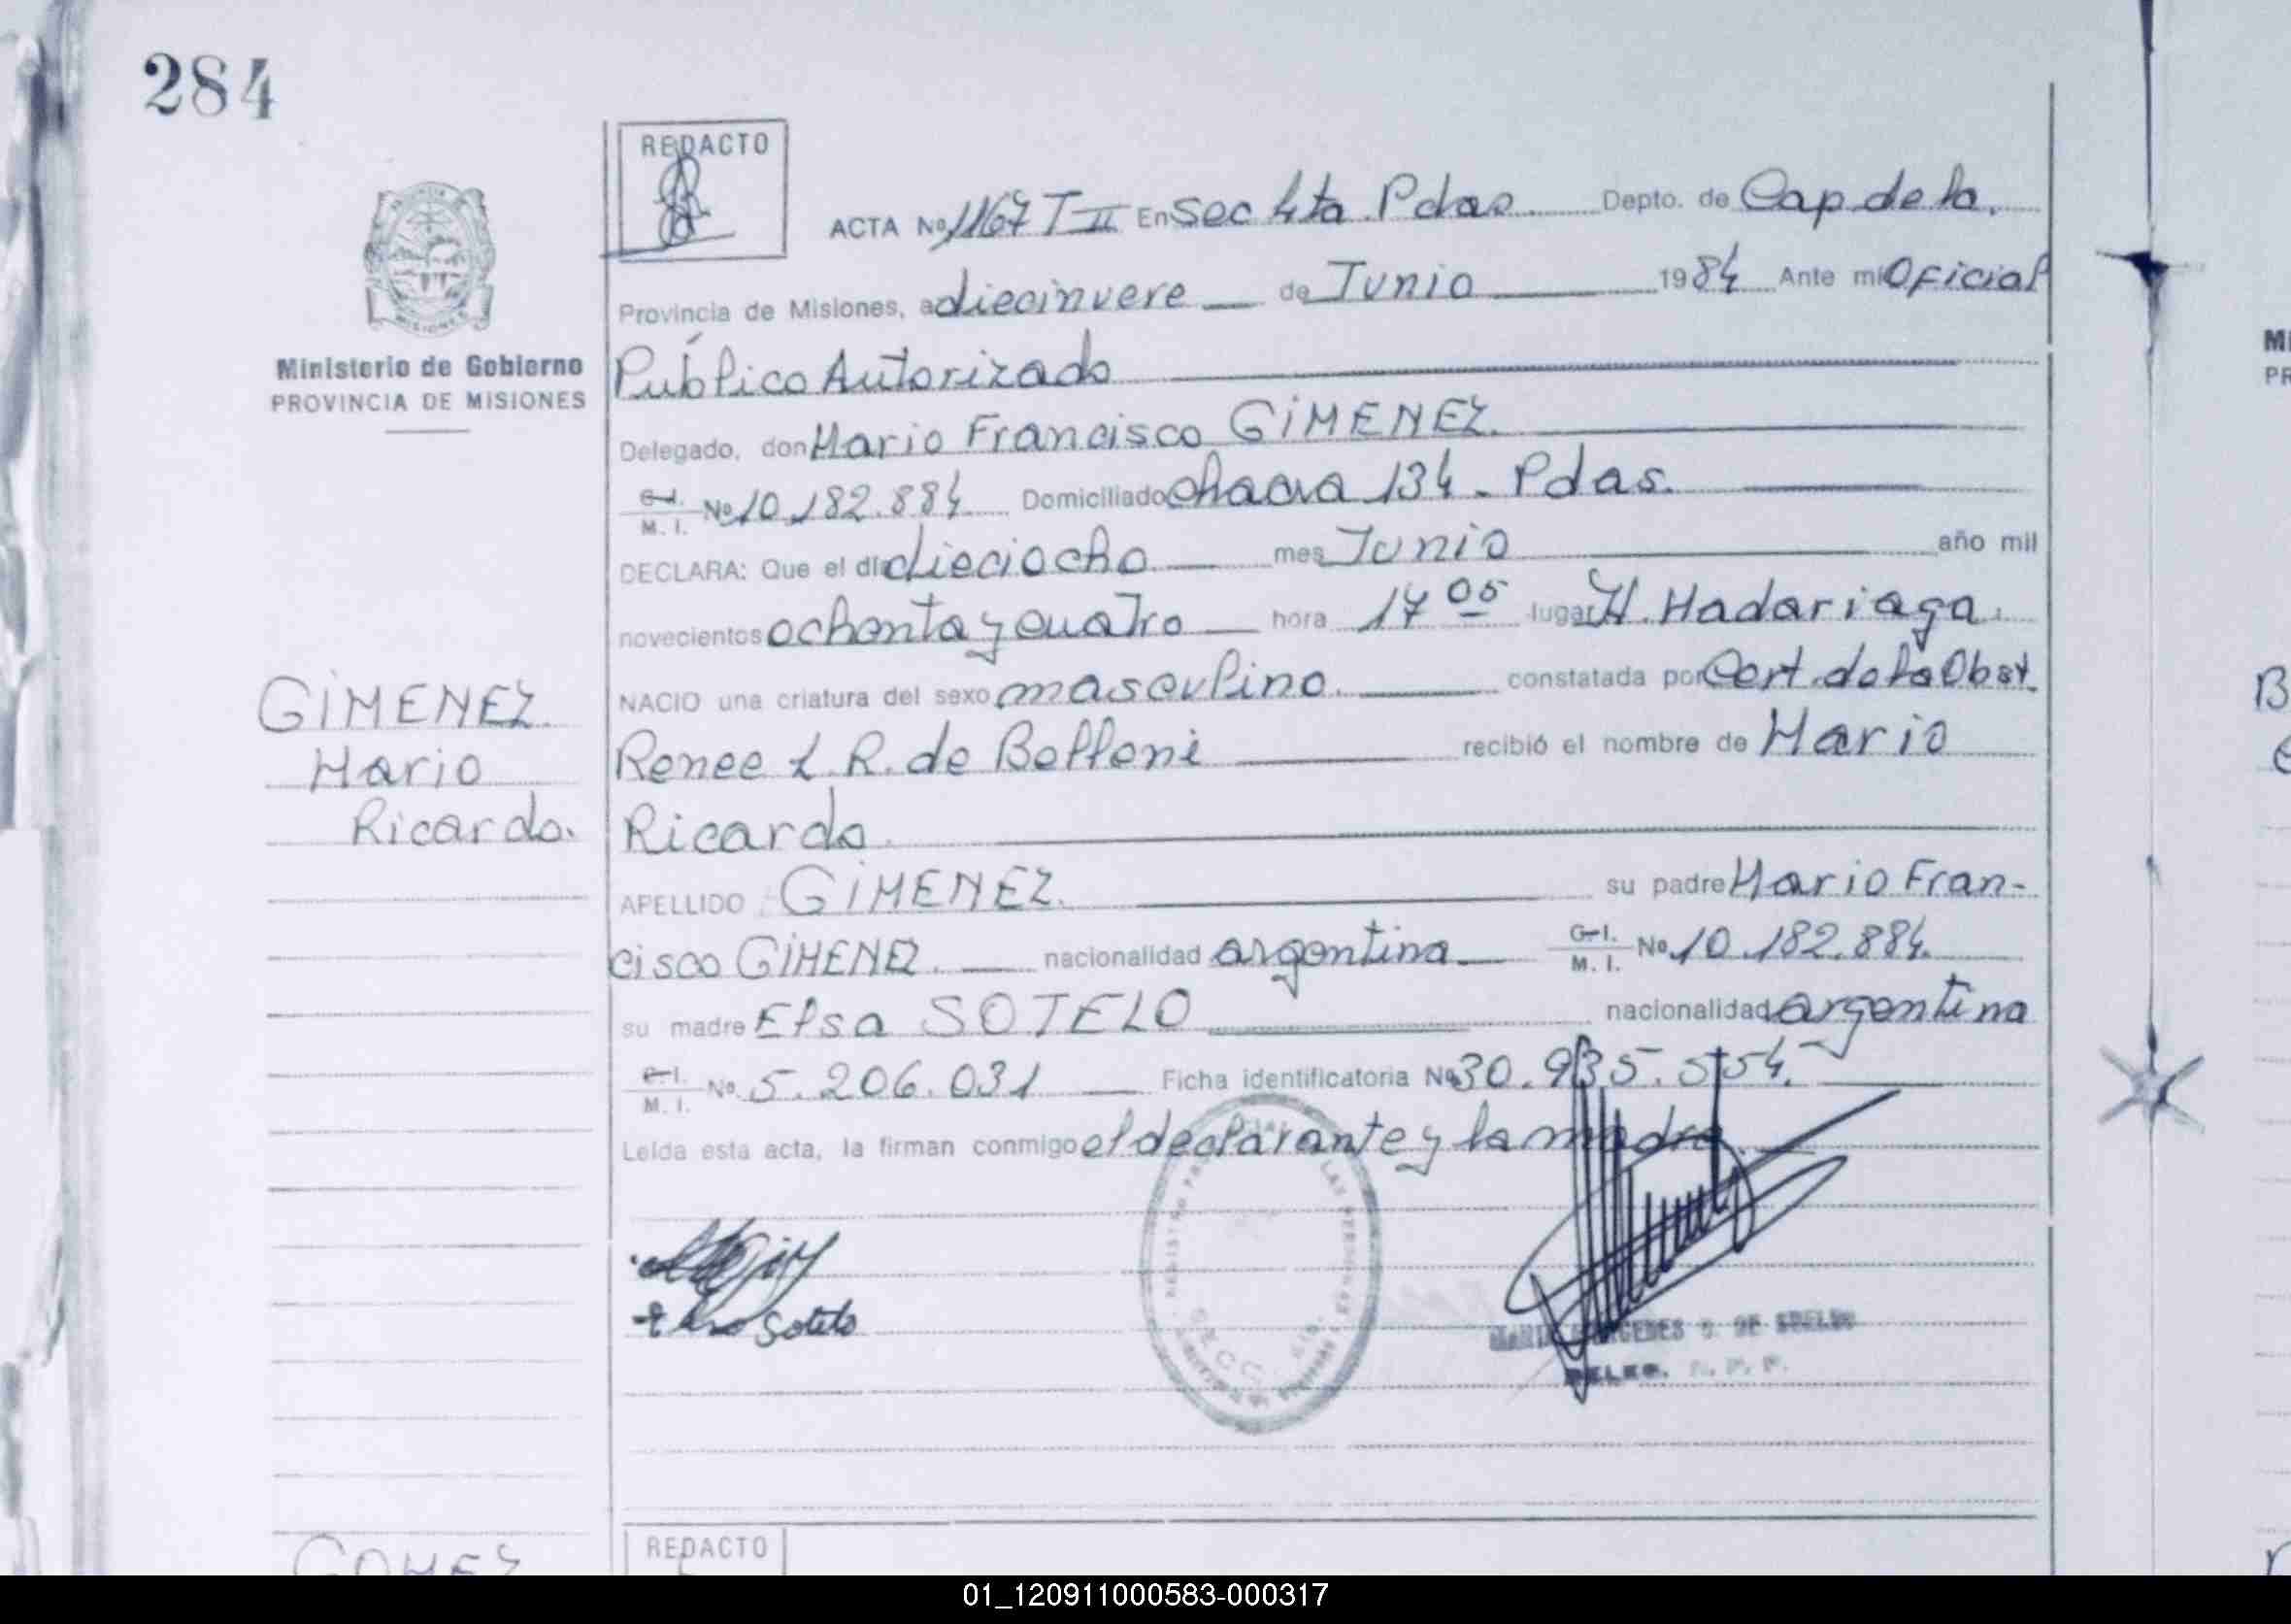 284
REDACTO
ACTA Nº 1167 T II En Sec 4ta. Pdas. Depto. de Cap. de la.
Provincia de Misiones, a diecinueve de Junio 1984 Ante mí Oficial
Ministerio de Gobierno
PROVINCIA DE MISIONES
Público Autorizado
Delegado, don Mario Francisco GIMENEZ.
C.I. M.I. Nº 10.182.884 Domiciliado chacra 134 - Pdas.
DECLARA: Que el día dieciocho mes Junio año mil
novecientos ochenta y cuatro hora 17 05 lugar H. Madariaga.
NACIO una criatura del sexo masculino. constatada por Cert. de la Obst.
GIMENEZ.
Mario
Ricardo.
Renee L. R. de Belloni recibió el nombre de Mario
Ricardo.
APELLIDO GIMENEZ. su padre Mario Fran-
cisco GIMENEZ. nacionalidad argentina C.I. M.I. Nº 10.182.884.
su madre Elsa SOTELO nacionalidad argentina
C.I. M.I. Nº 5.206.031 Ficha identificatoria Nº 30.935.554.
Leída esta acta, la firman conmigo el declarante y la madre.
Sotelo
DE
DELEG. R. P. P.
REDACTO
GOMEZ
M
PR
B
01_120911000583-000317